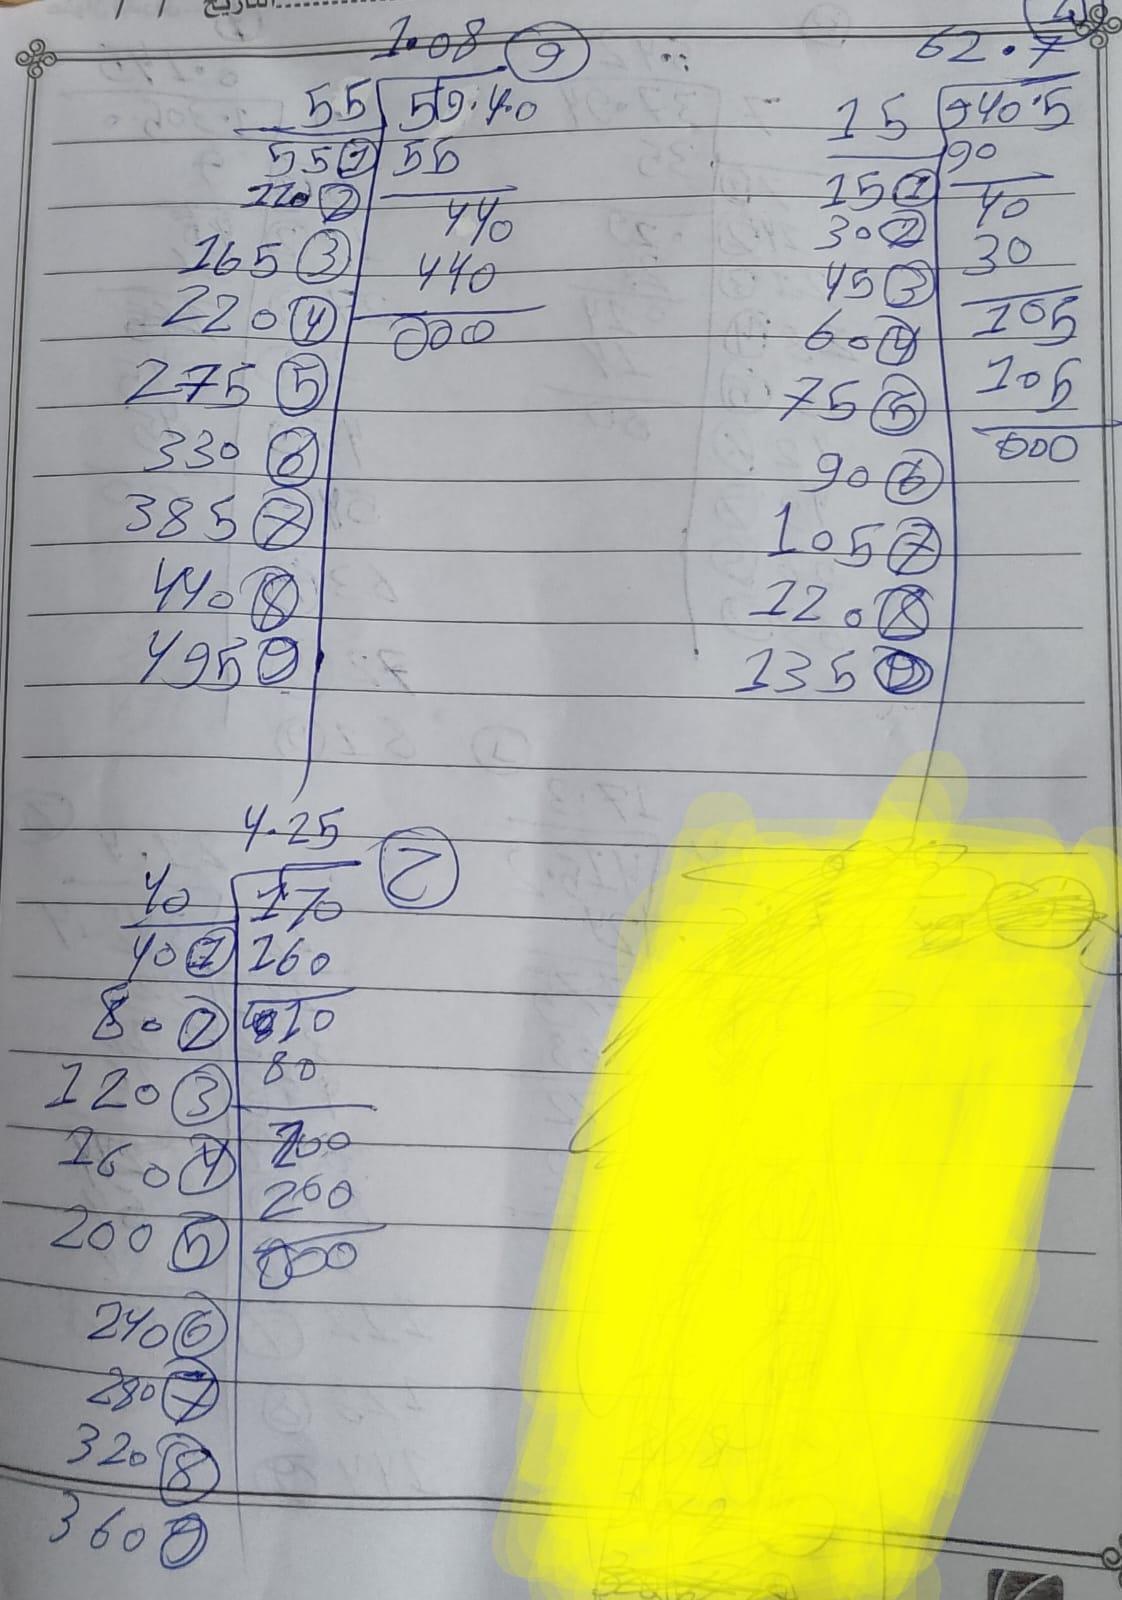 التاريخ / /
1.08 9
55 59.40
55 1 55
110 2 440
165 3 440
220 4 000
275 5
330 6
385 7
440 8
495 9
62.7
15 940.5
15 1 90
30 2 40
45 3 30
60 4 105
75 5 105
90 6 000
105 7
120 8
135 9
4.25
40 170
40 1 160
80 2 10
120 3 80
160 4 200
200 5 200
240 6 000
280 7
320 8
360 9